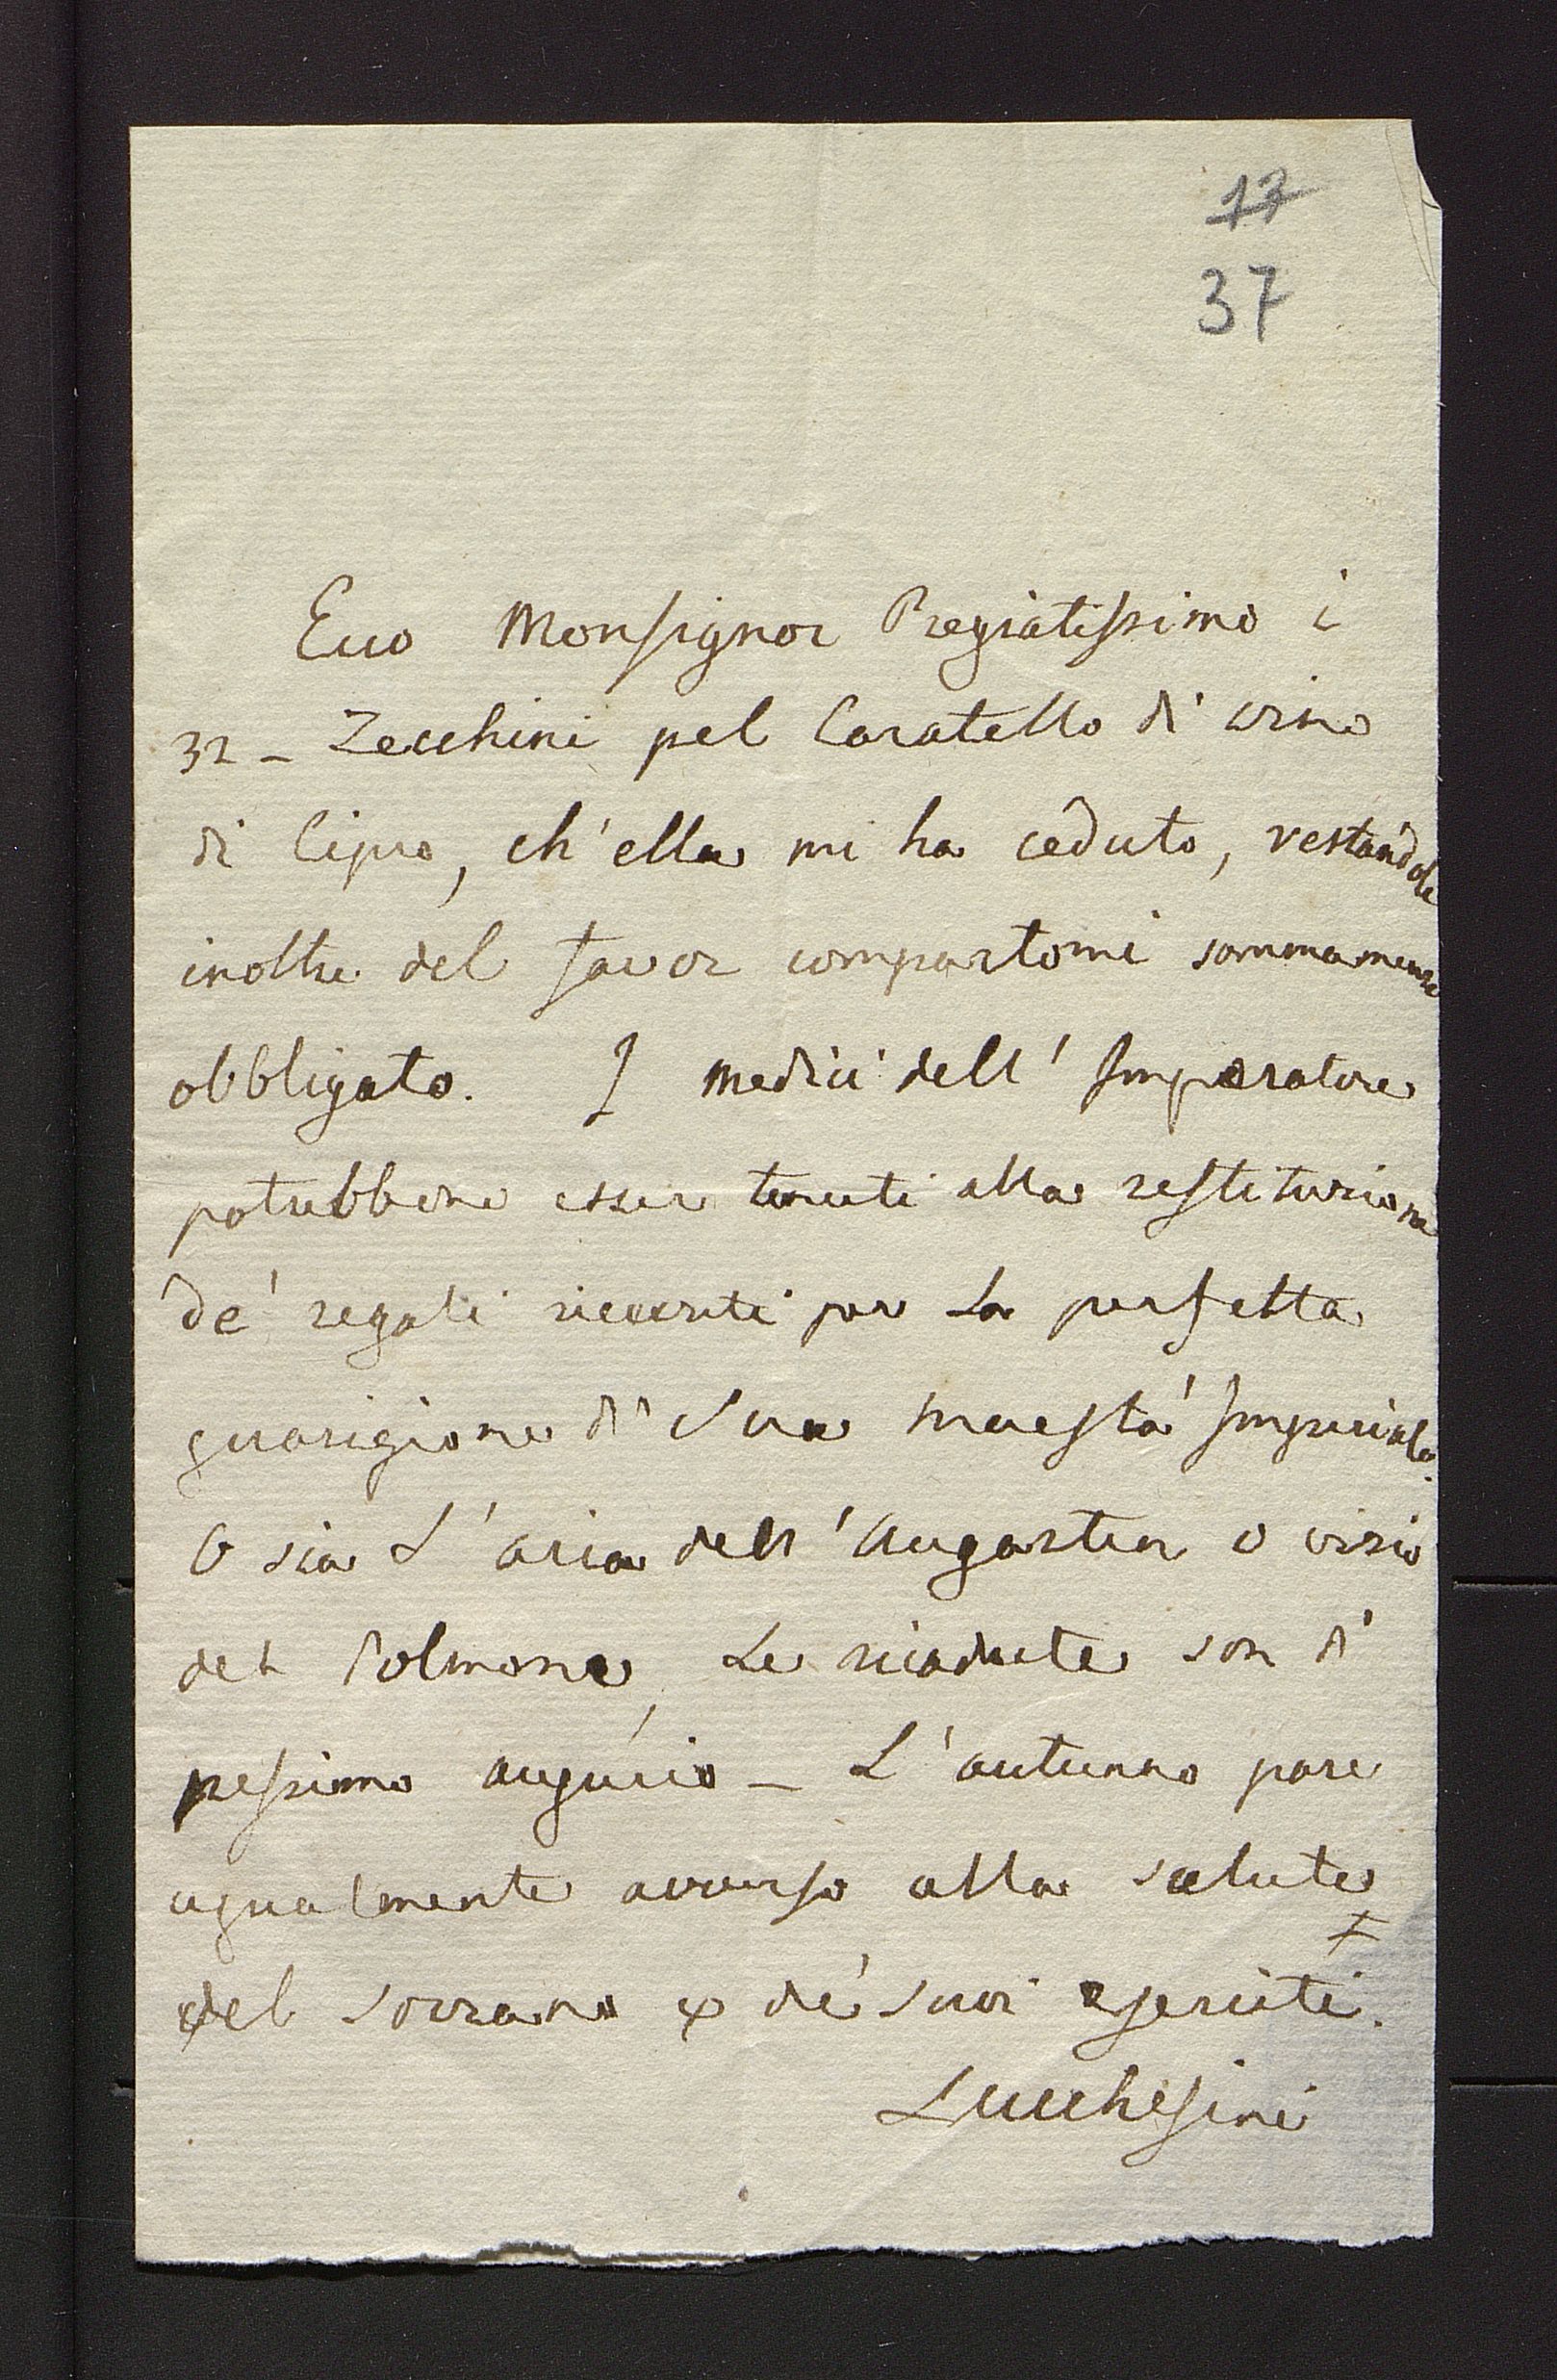 17
37
Ecco Monsignor Pregiatissimo i
32 – Zecchini pel Caratello di vino
di Cipro, ch'ella mi ha ceduto, restandole
inoltre del favor compartomi sommamente
obbligato. I medici dell' Imperatore
potrebbono esser tenuti alla restituzione
de' regali ricevuti per la perfetta
guarigione di Sua Maestà Imperiale.
O sia l'aria dell'Augarten o vizio
del Polmone, le ricadute son di
pessimo augúrio – L'autunno pare
ugualmente avverso alla salute
del sovrano e de' suoi eserciti.
Lucchesini